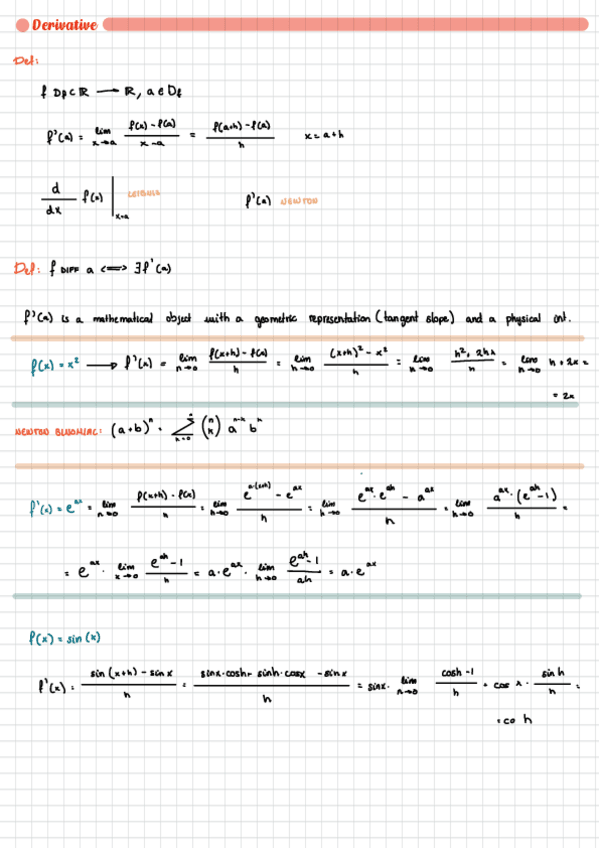 Derivative
Def:
f Df⊂ℝ ⟶ ℝ, a ∈ Df
f'(a) = lim x→a f(x) - f(a) / x - a = f(a+h) - f(a) / h x = a + h
d/dx f(x) | x=a LEIBNIZ f'(a) NEWTON
Def: f DIFF a <=> ∃ f'(a)
f'(a) is a mathematical object with a geometric representation (tangent slope) and a physical int.
f(x) = x² ⟶ f'(x) = lim h→0 f(x+h) - f(x) / h = lim h→0 (x+h)² - x² / h = lim h→0 h², 2hx / h = lim h→0 h + 2x =
= 2x
NEWTON BINOMIAL: (a+b)ⁿ = Σ k=0 n (n k) a^n-k b^k
f'(x) = e^ax = lim h→0 f(x+h) - f(x) / h = lim h→0 e^a(x+h) - e^ax / h = lim h→0 e^ax · e^ah - a^ax / h = lim h→0 a^ax · (e^ah - 1) / h =
= e^ax · lim x→0 e^ah - 1 / h = a · e^ax · lim h→0 e^ah - 1 / ah = a · e^ax
f(x) = sin (x)
f'(x) = sin (x+h) - sin x / h = sinx · cosh + sinh · cosx - sinx / h = sinx · lim h→0 cosh - 1 / h + cos x · sin h / h =
= co h